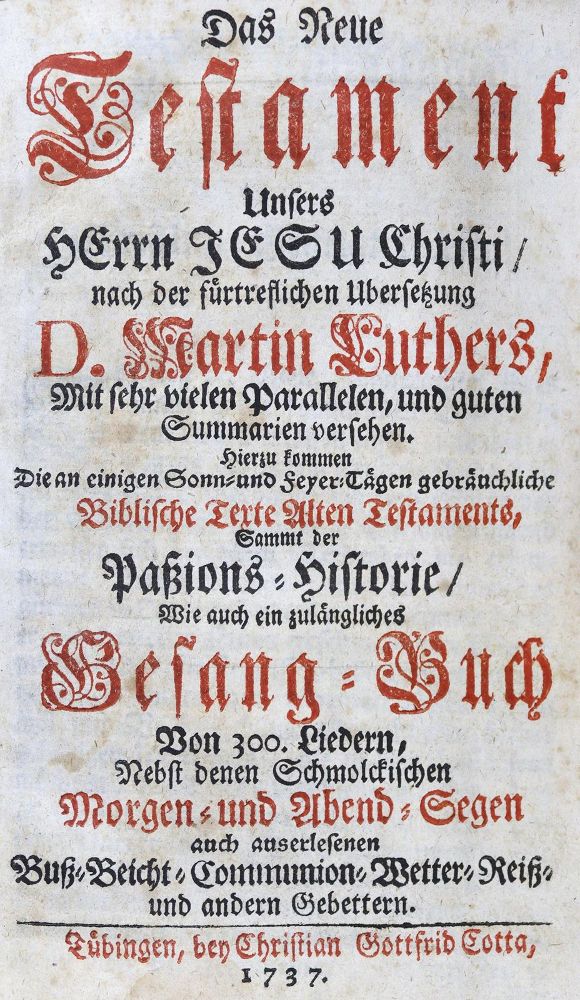 Das Neue
Testament
Unsers
HErrn JESU Christi/
nach der fürtreflichen Ubersetzung
D. Martin Luthers,
Mit sehr vielen Parallelen, und guten
Summarien versehen.
Hierzu kommen
Die an einigen Sonn- und Feyer-Tägen gebräuchliche
Biblische Texte Alten Testaments,
Sammt der
Paßions-Historie/
Wie auch ein zulängliches
Gesang-Buch
Von 300. Liedern,
Nebst denen Schmolckischen
Morgen- und Abend-Segen
auch auserlesenen
Buß-Beicht-Communion-Wetter-Reiß-
und andern Gebettern.
Tübingen, bey Christian Gottfrid Cotta,
1737.